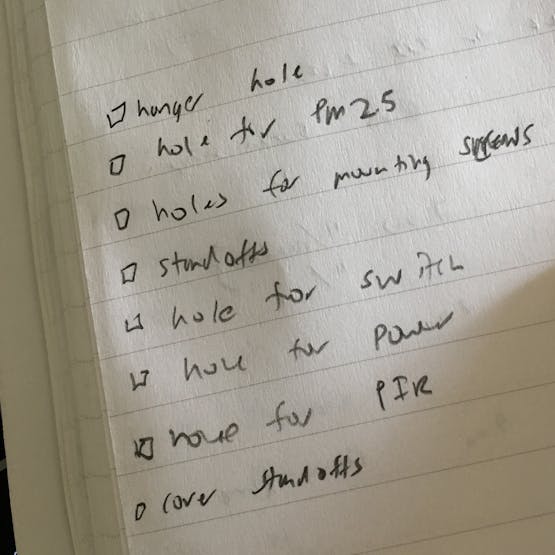 hanger hole
hole for PM 2.5
holes for mounting screws
standoffs
hole for switch
hole for power
hole for PIR
cover standoffs